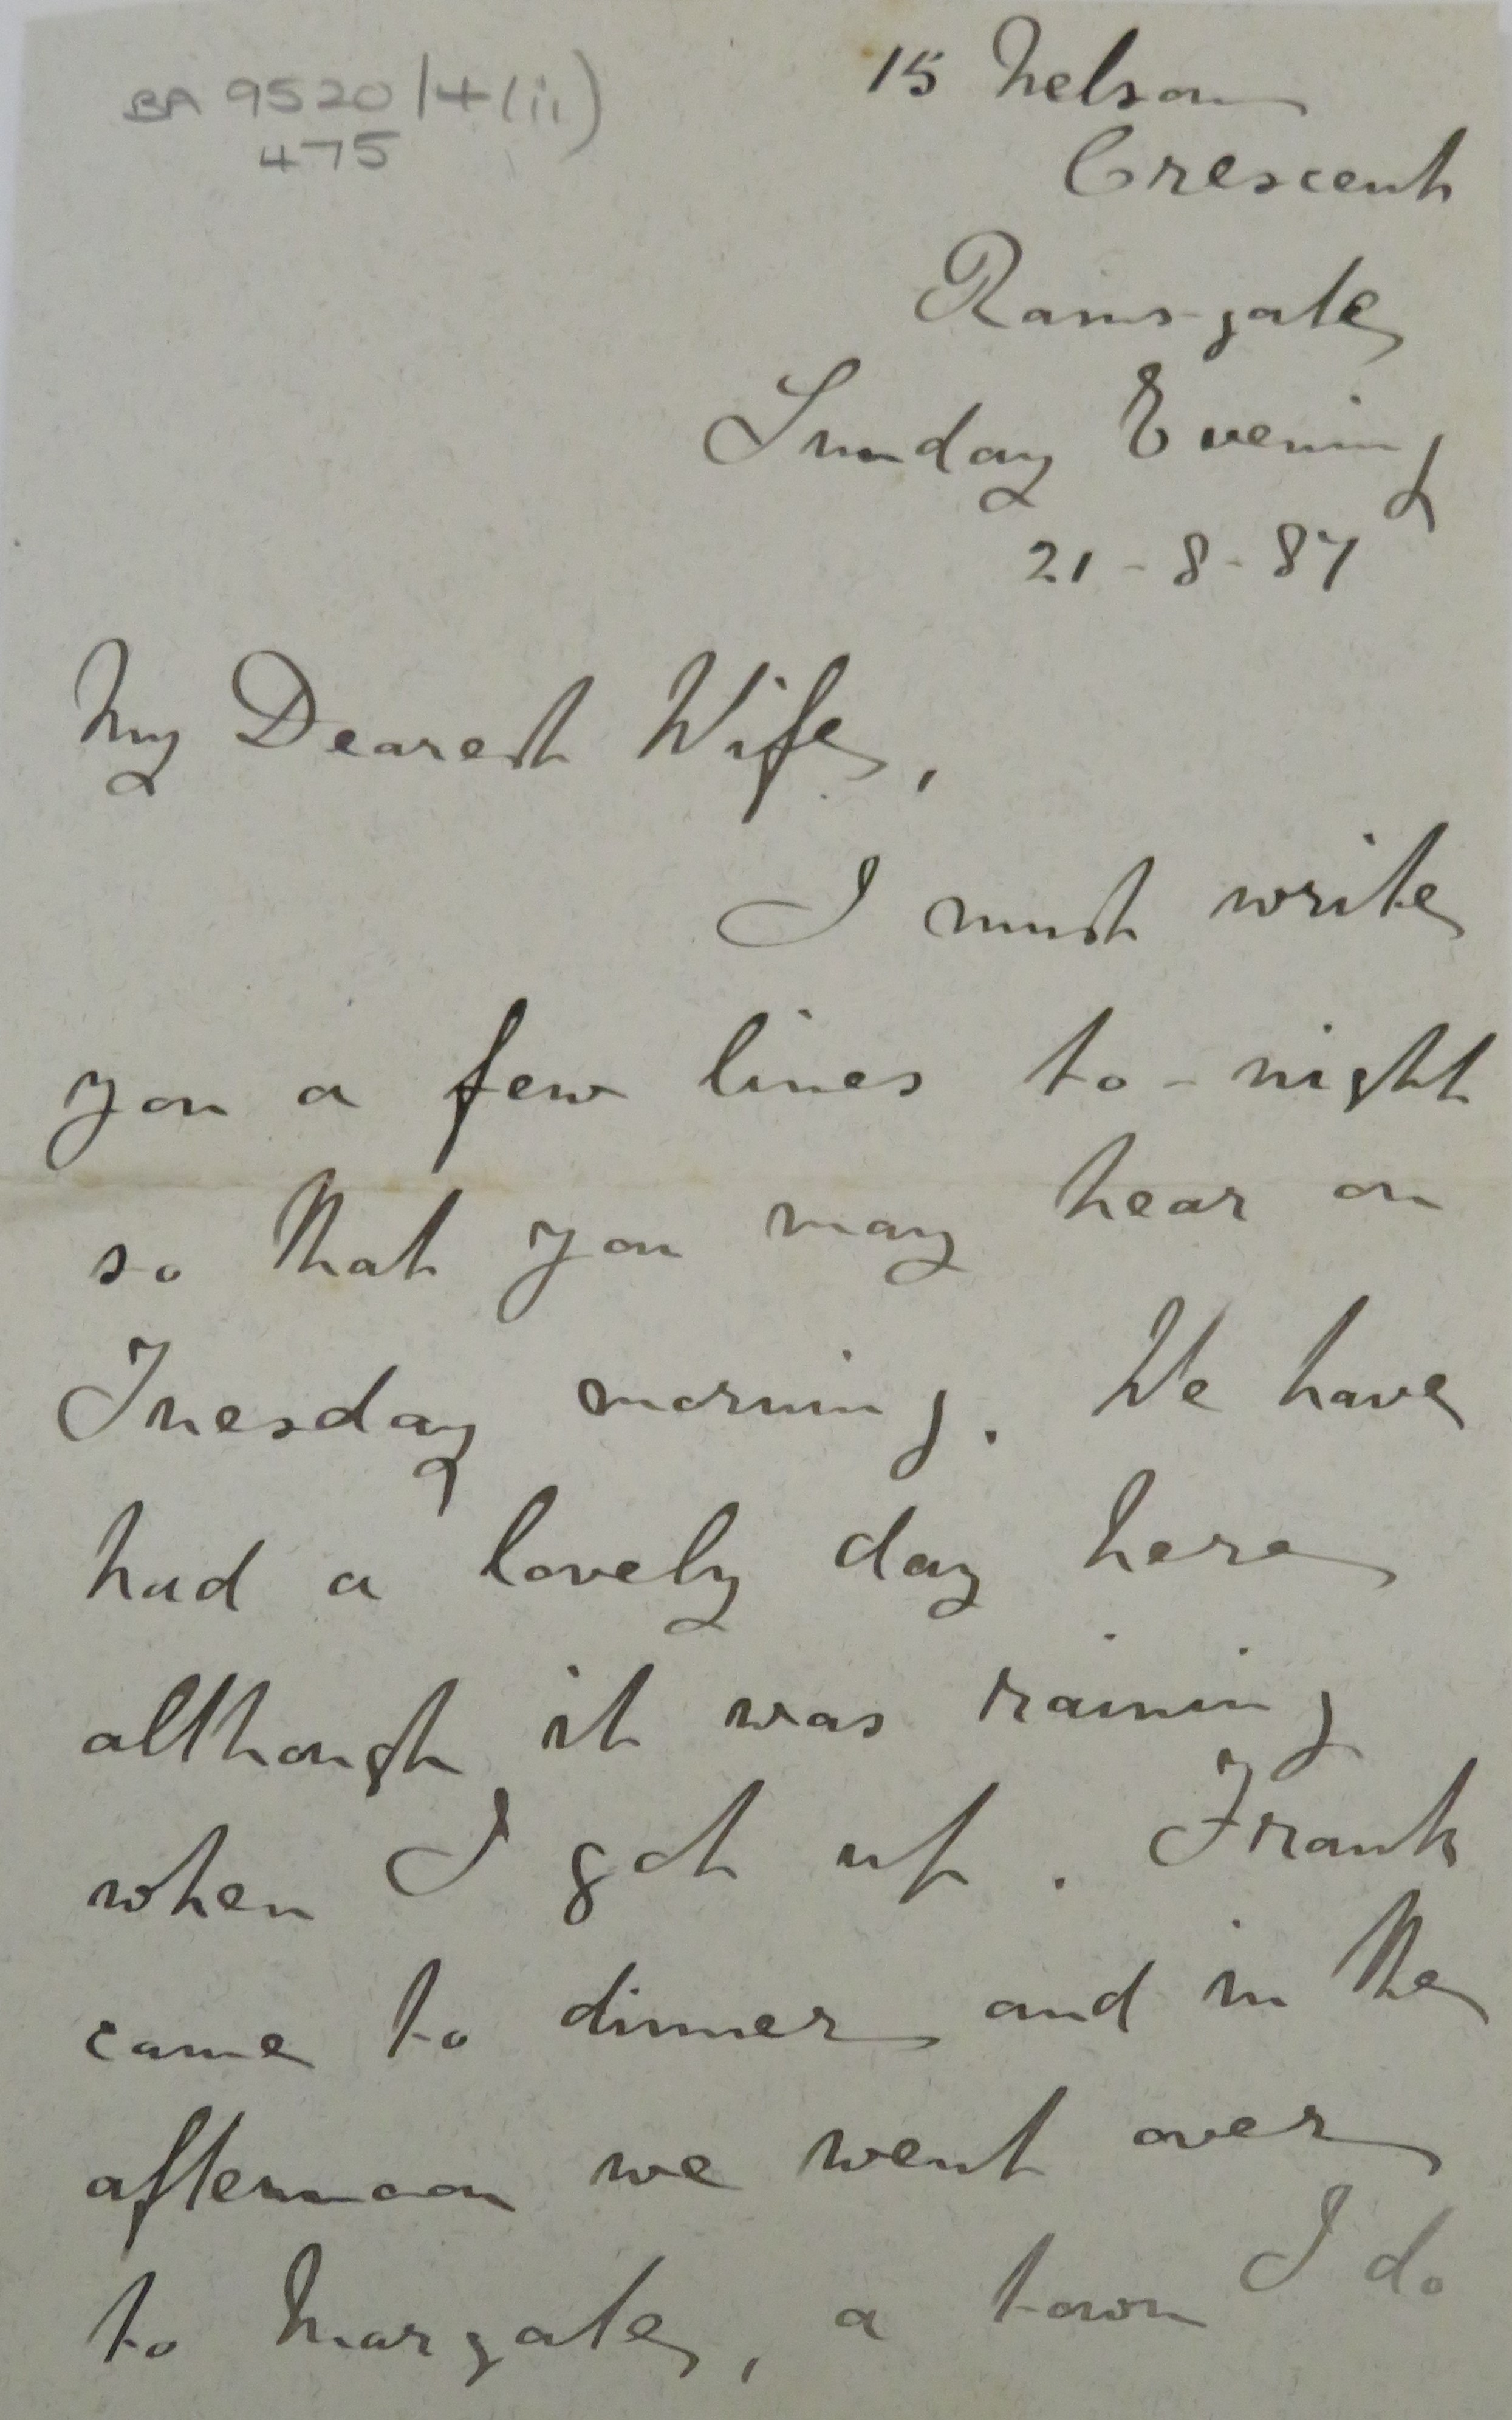 BA 9520/4(ii)
475
15 Nelson
Crescent
Ramsgate
Sunday Evening
21-8-87
My Dearest Wife,
I must write
you a few lines to-night
so that you may hear on
Tuesday morning. We have
had a lovely day here
although it was raining
when I got up. Frank
came to dinner and in the
afternoon we went over
to Margate, a town I do